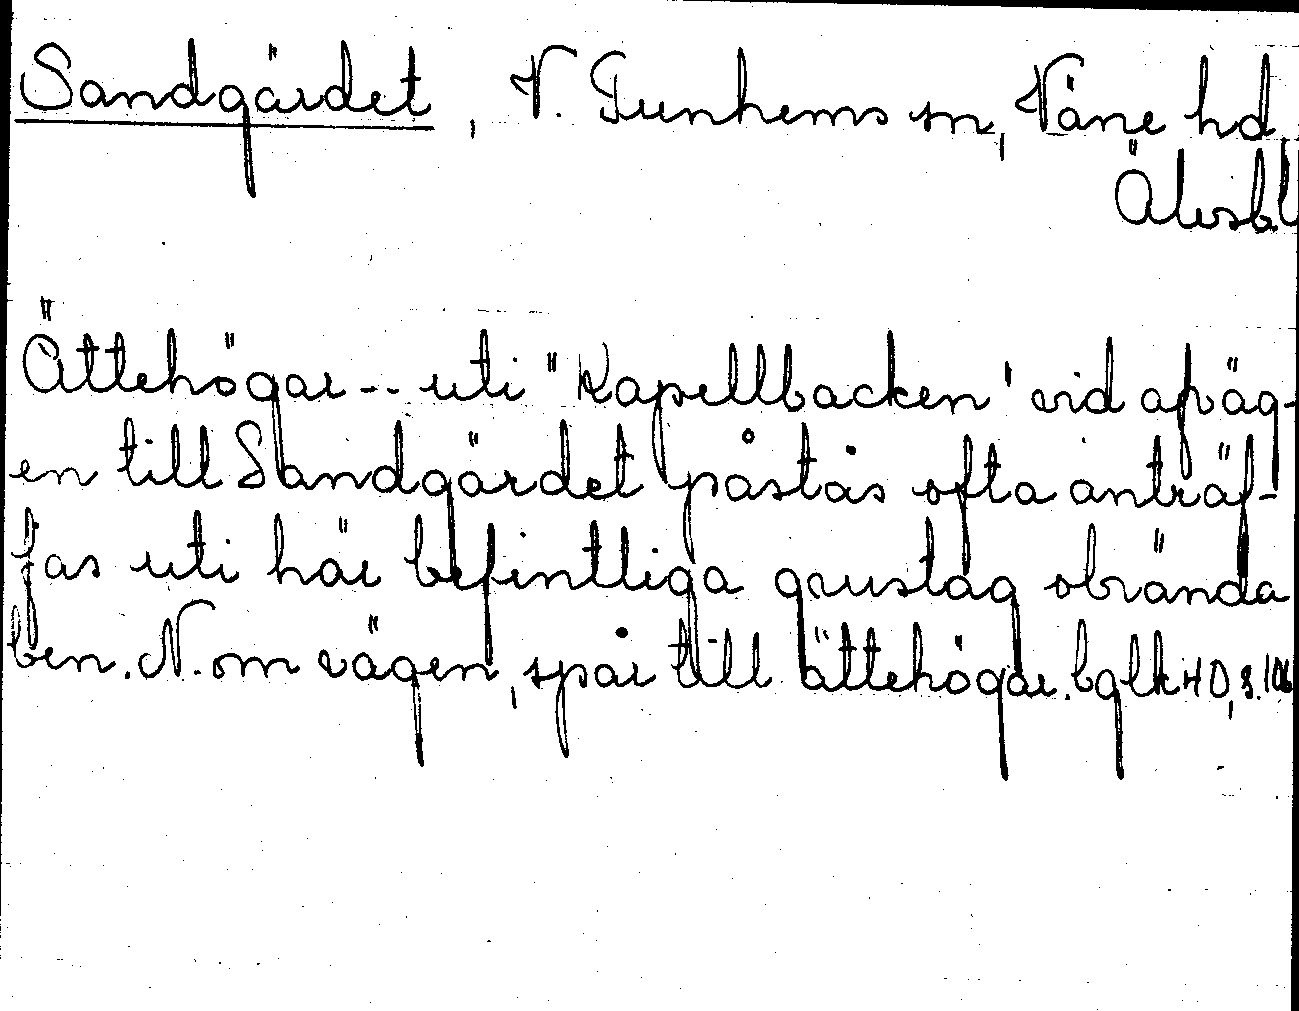 Sandgärdet, V. Tunhems sn, Väne hd
Älvsbl
Ättehögar -- uti "Kapellbacken" vid afväg-
en till Sandgärdet påstås ofta anträf-
fas uti här befintliga grustag obrända
ben. N. om vägen, spår till ättehögar.